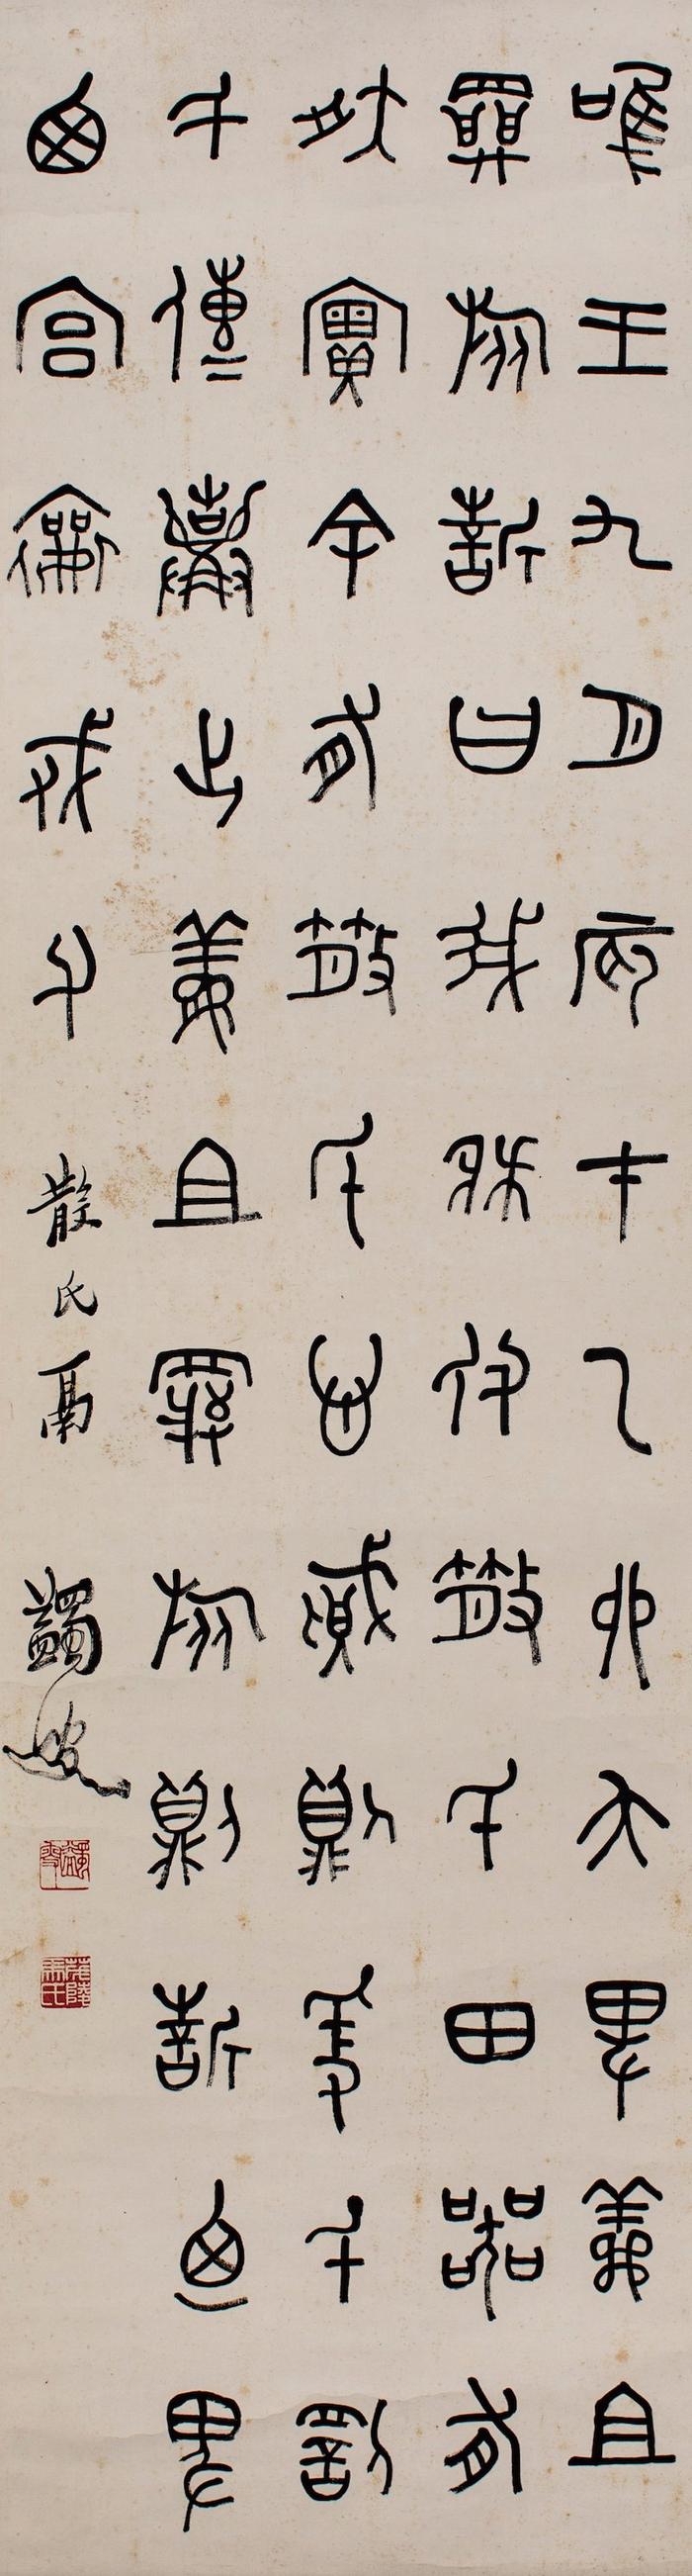 唯王九月辰才乙卯夨卑鮮且
𢍰旅誓曰我既付散氏田器有
爽實余有散氏心賊則爰千罰
千傳棄之鮮且𢍰旅則誓迺卑
西宮襄戎父 散氏鬲 蠲叟